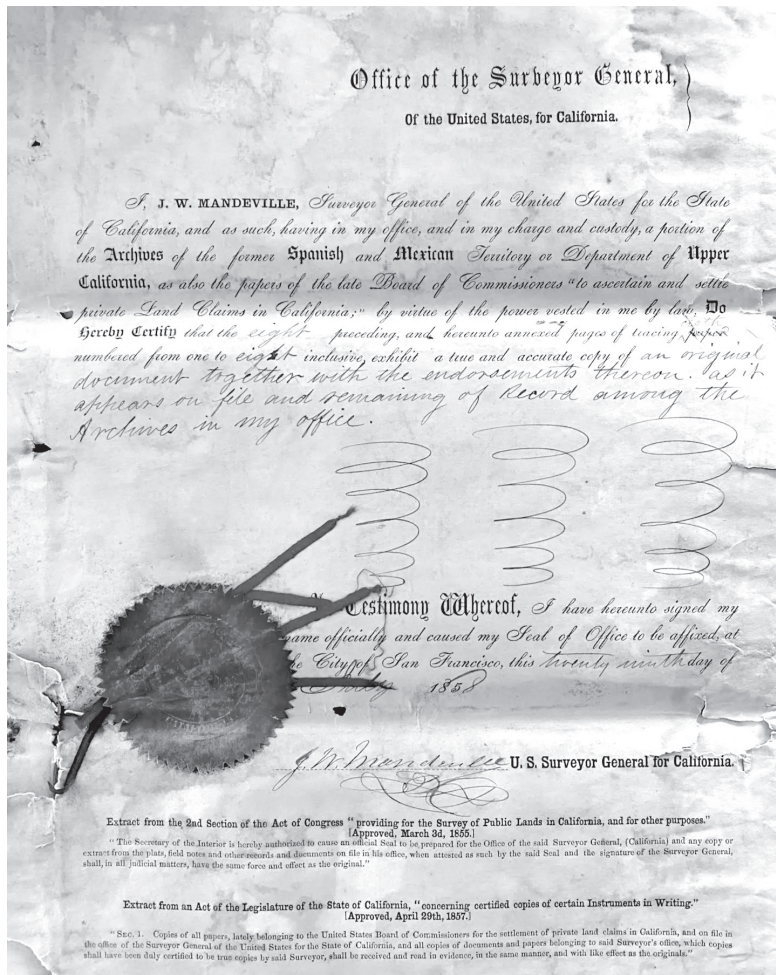 Office of the Surveyor General,
Of the United States, for California.
I, J. W. MANDEVILLE, Surveyor General of the United States for the State
of California, and as such, having in my office, and in my charge and custody, a portion of
the Archives of the former Spanish and Mexican Territory or Department of Upper
California, as also the papers of the late Board of Commissioners "to ascertain and settle
private Land Claims in California;" by virtue of the power vested in me by law, Do
Hereby Certify that the eight preceding, and hereunto annexed pages of tracing
numbered from one to eight inclusive, exhibit a true and accurate copy of an original
document together with the endorsements thereon. as it
appears on file and remaining of Record among the
Archives in my office.
Testimony Whereof, I have hereunto signed my
name officially and caused my Seal of Office to be affixed, at
City of San Francisco, this twenty ninth day of
1858
J. W. Mandeville U. S. Surveyor General for California.
Extract from the 2nd Section of the Act of Congress "providing for the Survey of Public Lands in California, and for other purposes."
[Approved, March 3d, 1855.]
"The Secretary of the Interior is hereby authorized to cause an official Seal to be prepared for the Office of the said Surveyor General, (California) and any copy or
extract from the plats, field notes and other records and documents on file in his office, when attested as such by the said Seal and the signature of the Surveyor General,
shall, in all judicial matters, have the same force and effect as the original."
Extract from an Act of the Legislature of the State of California, "concerning certified copies of certain Instruments in Writing."
[Approved, April 29th, 1857.]
"SEC. 1. Copies of all papers, lately belonging to the United States Board of Commissioners for the settlement of private land claims in California, and on file in
the office of the Surveyor General of the United States for the State of California, and all copies of documents and papers belonging to said Surveyor's office, which copies
shall have been duly certified to be true copies by said Surveyor, shall be received and read in evidence, in the same manner, and with like effect as the originals."